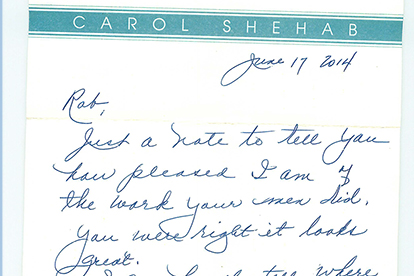 CAROL SHEHAB
June 17 2014
Rob,
Just a note to tell you
how pleased I am
the work your men did.
You were right it looks
great.
tell where